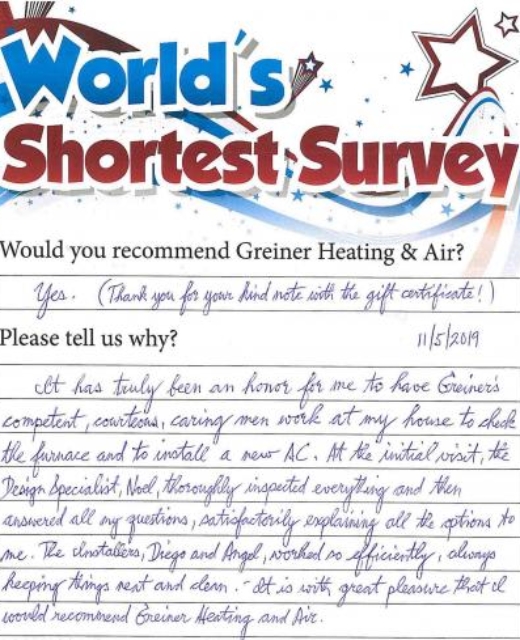 World's
Shortest Survey
Would you recommend Greiner Heating & Air?
Yes. (Thank you for your kind note with the gift certificate!)
Please tell us why?
11/5/2019
It has truly been an honor for me to have Greiner's
competent, courteous, caring men work at my house to check
the furnace and to install a new AC. At the initial visit, the
Design Specialist, Noel, thoroughly inspected everything and then
answered all my questions, satisfactorily explaining all the options to
me. The Installers, Diego and Angel, worked so efficiently, always
keeping things neat and clean. - It is with great pleasure that I
would recommend Greiner Heating and Air.